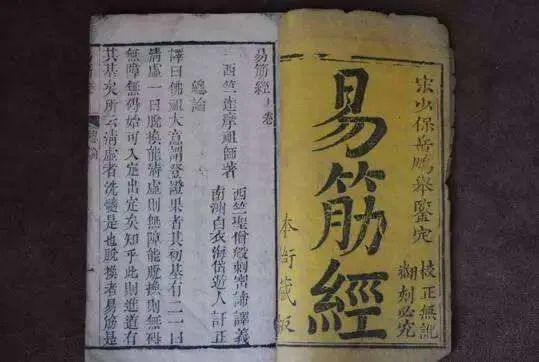 宋少保岳鵬舉鑒定
校正無訛
翻刻必究
易筋經
本衙藏板
易筋經上卷
西竺達摩祖師著
西竺聖僧般剌密諦譯義
南洲白衣海岱遊人訂正
總論
譯曰佛祖大意謂登證果者其初基有二一曰
清虛一曰脫換能清虛則無障能脫換則無
無障無碍始可入定出定矣知乎此則進道有
其基矣所云清虛者洗髓是也脫換者易筋是
總論